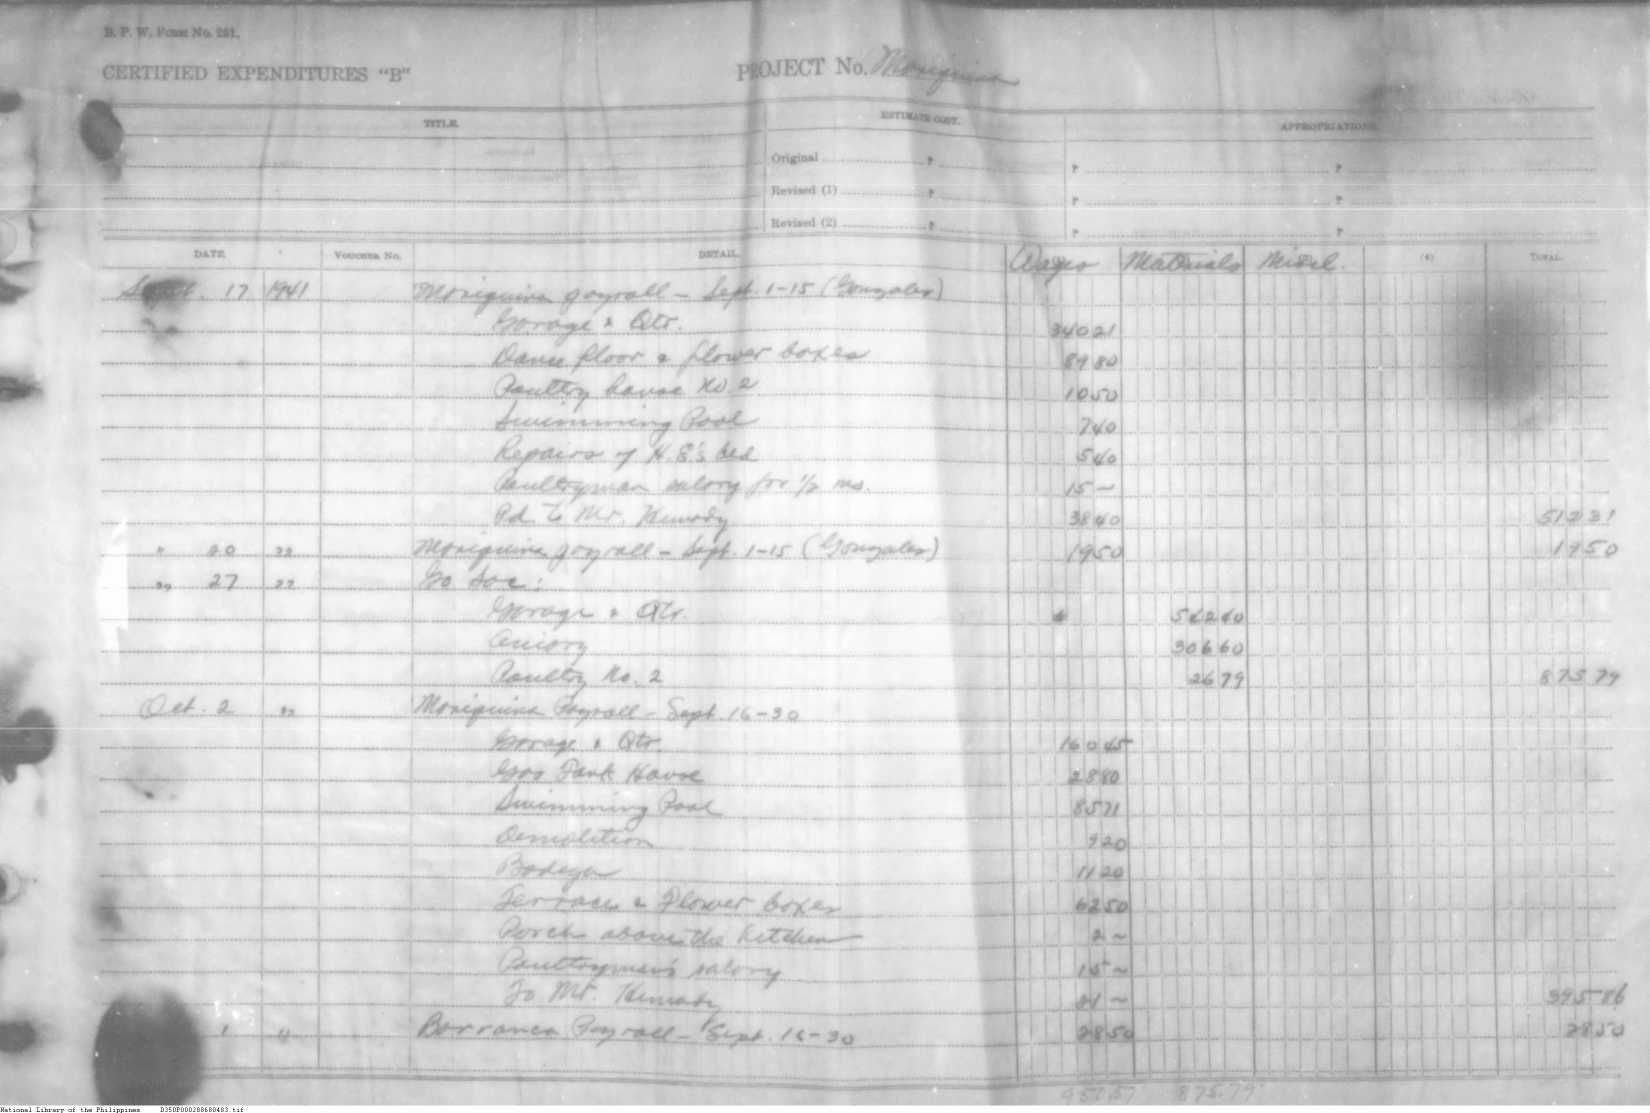 B. P. W. Form No. 231.
CERTIFIED EXPENDITURES "B" PROJECT No. Mariquina
TITLE. ESTIMATE COST. APPROPRIATIONS.
Original ₱ ₱ ₱
Revised (1) ₱ ₱ ₱
Revised (2) ₱ ₱ ₱
DATE. VOUCHER No. DETAIL. Wages Materials Miscel. (4) TOTAL.
Sept. 17 1941 Mariquina payroll — Sept. 1-15 (Gonzales)
Garage & Qtr. 340 21
Dance floor & flower boxes 89 80
Poultry house No. 2 10 50
Swimming Pool 7 40
Repairs of H. E.'s bed 5 40
Poultryman salary for 1/2 mo. 15 —
Pd. to Mr. Kennedy 38 40 512 31
" 20 " Mariquina payroll — Sept. 1-15 (Gonzales) 19 50 19 50
" 27 "
Garage & Qtr. 542 40
306 60
Poultry No. 2 26 79 875 79
Oct. 2 " Mariquina Payroll — Sept. 16-30
Garage & Qtr. 160 45
Gas Tank House 28 80
Swimming Pool 85 71
Demolition 9 20
Bodega 11 20
Terrace & Flower boxes 62 50
Porch above the kitchen 2 —
Poultryman's salary 15 —
To Mr. Kennedy 21 — 395 86
" Barranca Payroll — Sept. 16-30 28 50 28 50
875.79
National Library of the Philippines D350P000288680483.tif